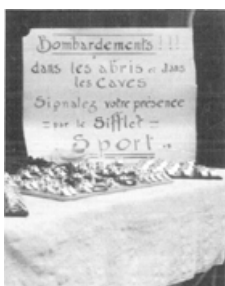 Bombardements !!!
dans les abris et dans
les Caves
Signalez votre présence
= sur le Sifflet =
- Sport -